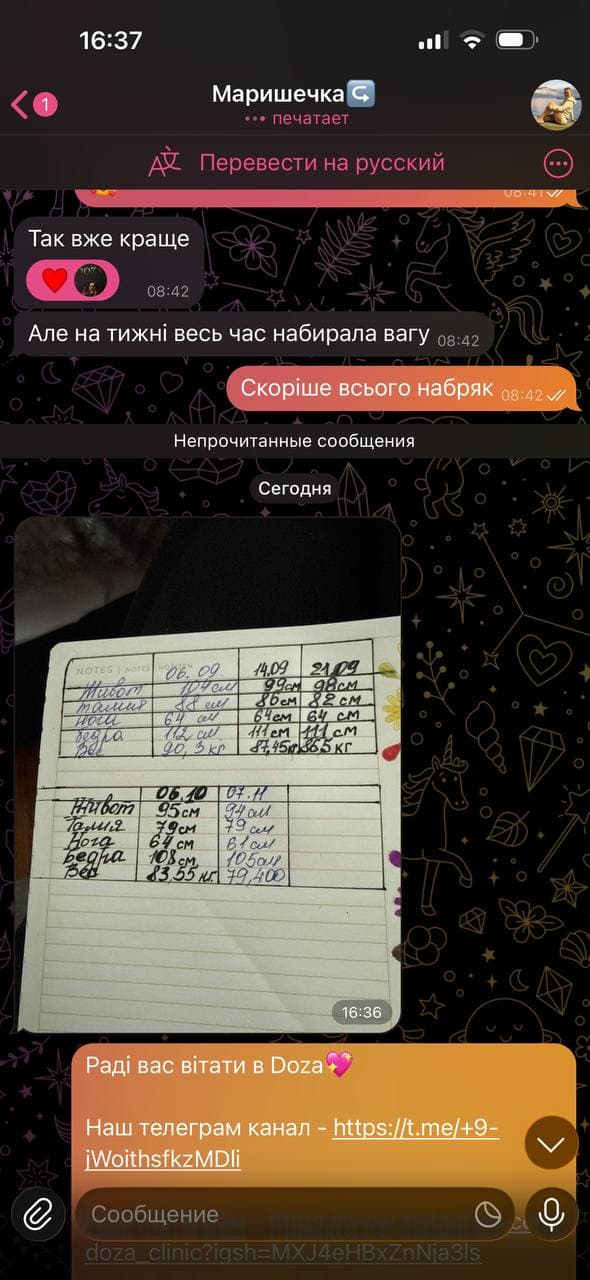 16:37
1
Маришечка
печатает
Перевести на русский
08:41
Так вже краще
08:42
Але на тижні весь час набирала вагу 08:42
Скоріше всього набряк 08:42
Непрочитанные сообщения
Сегодня
NOTES | NOTES
06.09. 14.09 21.09
Живот 104см 99см 98см
Талия 88 см 86см 82 см
Ноги 64 см 64см 64 см
бедра 112 см 111 см 111 см
Вес 90,3кг 87,45кг 86,5 кг
06.10 07.11
Живот 95см 94см
Талия 79см 79см
Нога 64см 61см
Бедра 108см 105см
Вес 83,55 кг. 79,400
16:36
Раді вас вітати в Doza💖
Наш телеграм канал - https://t.me/+9-
jWoithsfkzMDli
Сообщение
doza_clinic?igsh=MXJ4eHBxZnNja3ls